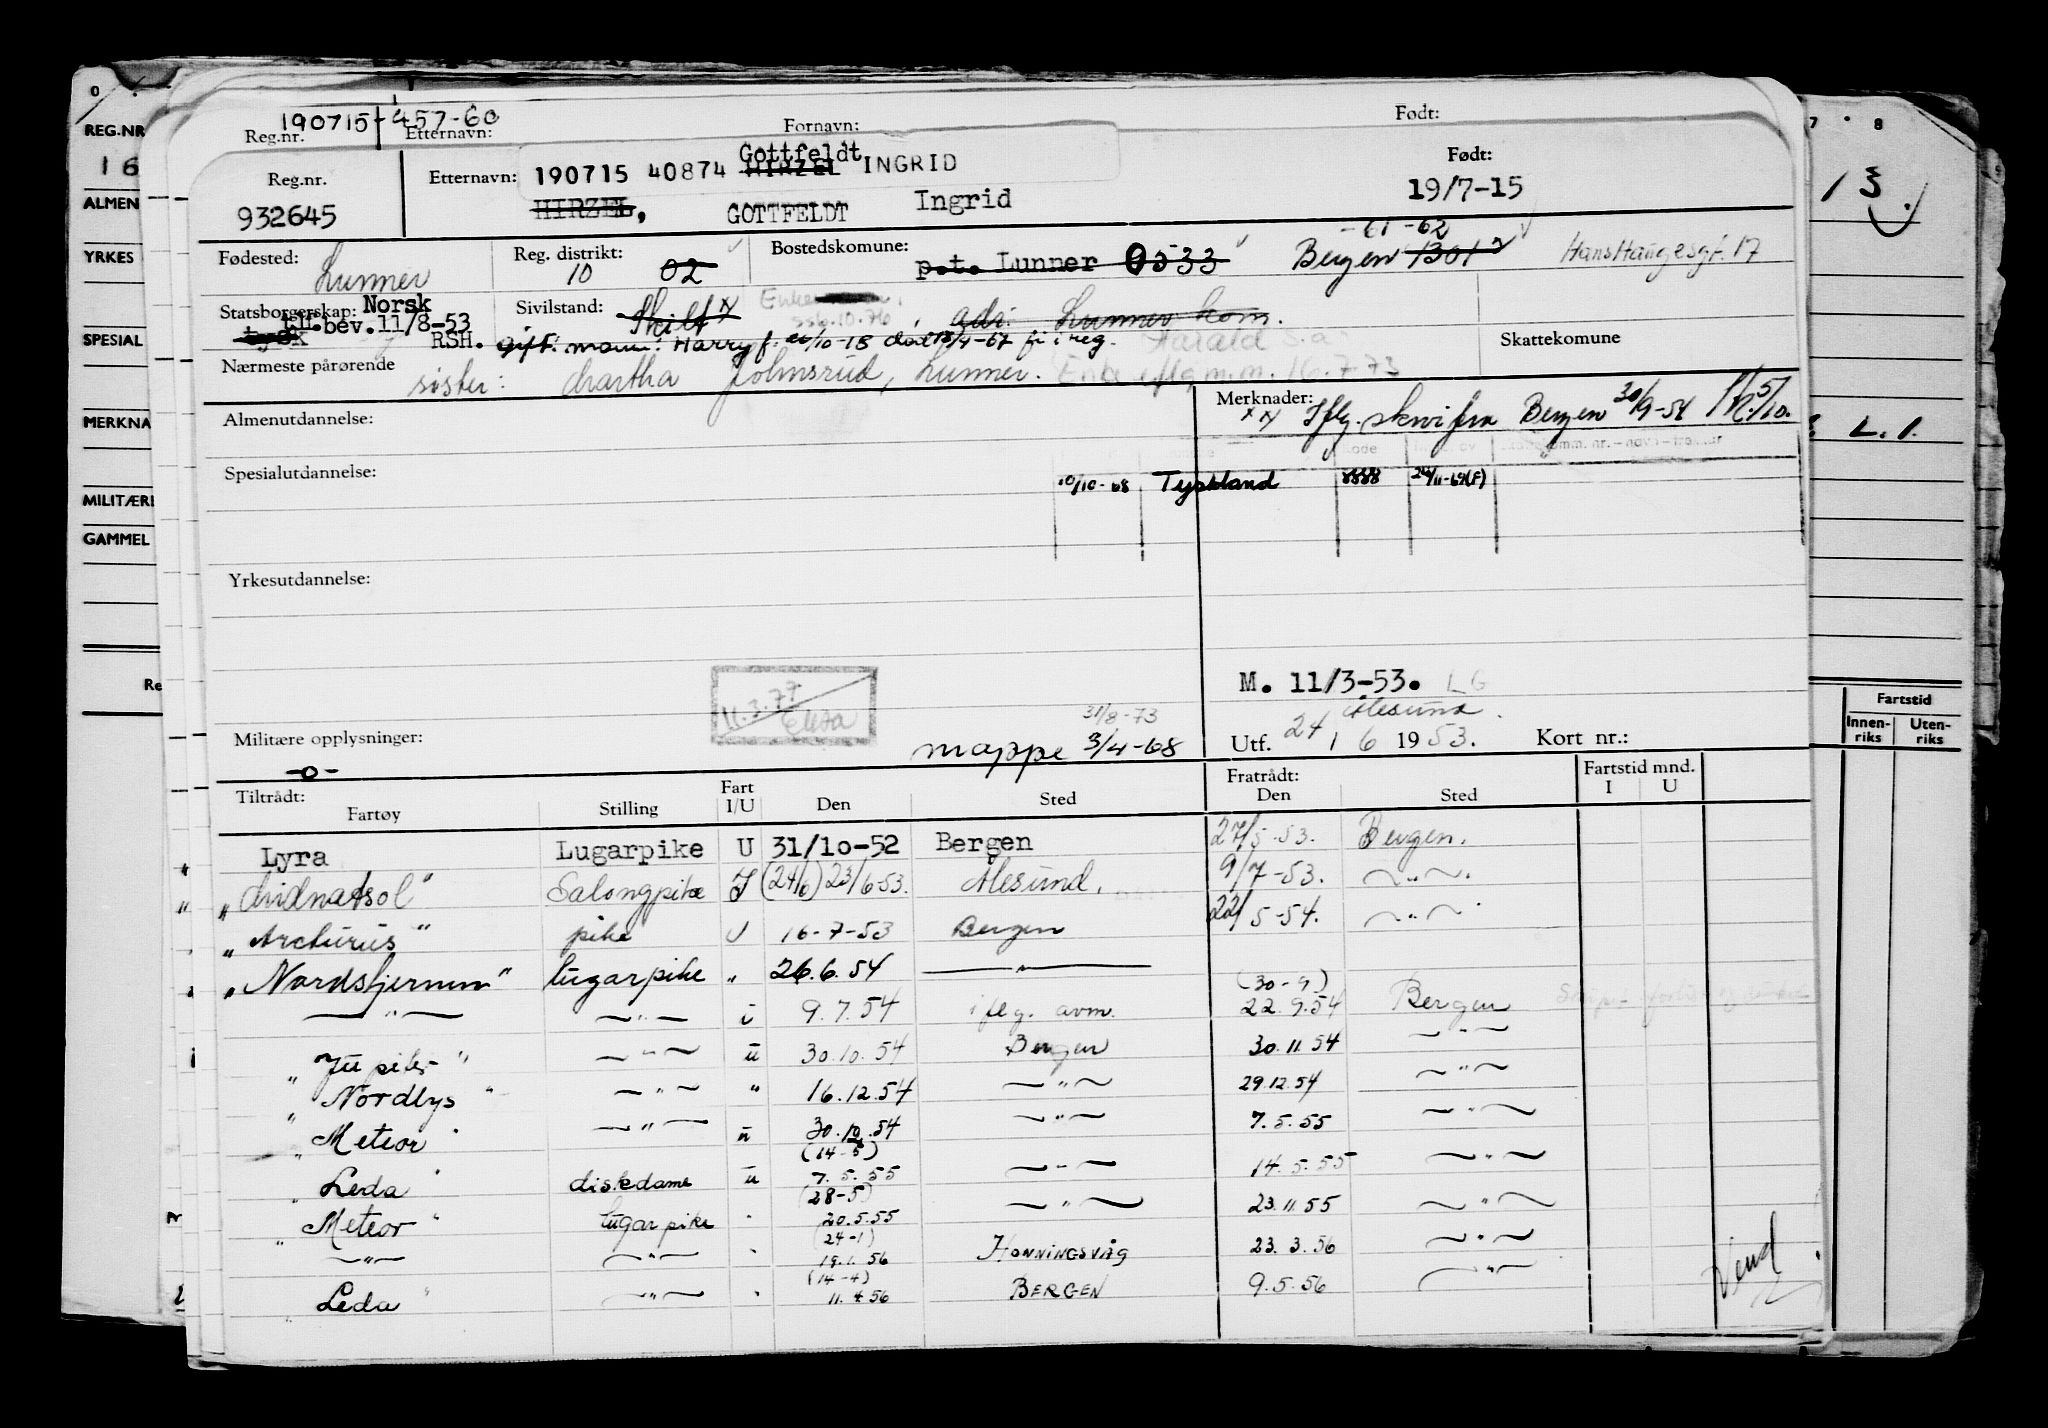 190715-457-60
Reg.nr. Etternavn: Fornavn: Født:
190715 40874 Gottfeldt HIRZEL INGRID
Reg.nr. Etternavn: Født:
932645 HIRZEL, GOTTFELDT Ingrid 19/7-15
Fødested: Lunner Reg. distrikt: 10 02 Bostedskommune: p.t. Lunner 0533 Bergen 1301 -61-62 Hans Haugesgt. 17
Statsborgerskap: Norsk Sivilstand: Skilt adr. Lunner kom.
tysk bev. 11/8-53 RSH. gift. mann: Harry f. /10-13 død /4-67 Skattekomune
Nærmeste pårørende søster: Martha Lunner. Enke iflg m.m. 16.7-73
Almenutdannelse: Merknader: xx Iflg. skriv fra Bergen 30/9-54
Spesialutdannelse: 10/10-68 Tyskland 8888
Yrkesutdannelse:
M. 11/3-53. LG
11.3.77
31/8-73 Ålesund
Militære opplysninger: -o- mappe 3/4-68 Utf. 24 / 6 1953. Kort nr.:
Tiltrådt: Fratrådt: Fartstid mnd.
Fartøy Stilling Fart I/U Den Sted Den Sted I U
Lyra Lugarpike U 31/10-52 Bergen 27/5-53. Bergen.
"Midnatsol" Salongpike I (24/6) 23/6-53. Ålesund. 9/7-53. — " —
"Arcturus" pike U 16-7-53 Bergen 22/5-54. — " —
"Nordstjernen" lugarpike " 26.6.54 — " —
— " — — " — i 9.7.54 iflg. avm. (30-9) 22.9.54 Bergen
"Jupiter" — " — u 30.10.54 Bergen 30.11.54 — " —
"Nordlys" — " — " 16.12.54 — " — 29.12.54 — " —
"Meteor" — " — u 30.12.54 — " — 7.5.55 — " —
"Leda" diskdame u (14-5) 7.5.55 — " — 14.5.55 — " —
"Meteor" lugarpike " (28-5) 20.5.55 — " — 23.11.55 — " —
— " — — " — " (24-1) 19.1.56 HONNINGSVÅG 23.3.56 — " —
"Leda" — " — " (14-4) 11.4.56 BERGEN 9.5.56 — " —
Vend
REG.NR
16
ALMEN
YRKES
SPESIAL
MERKNA
MILITÆRE
GAMMEL
7 8
Fartstid
Innen-riks Uten-riks